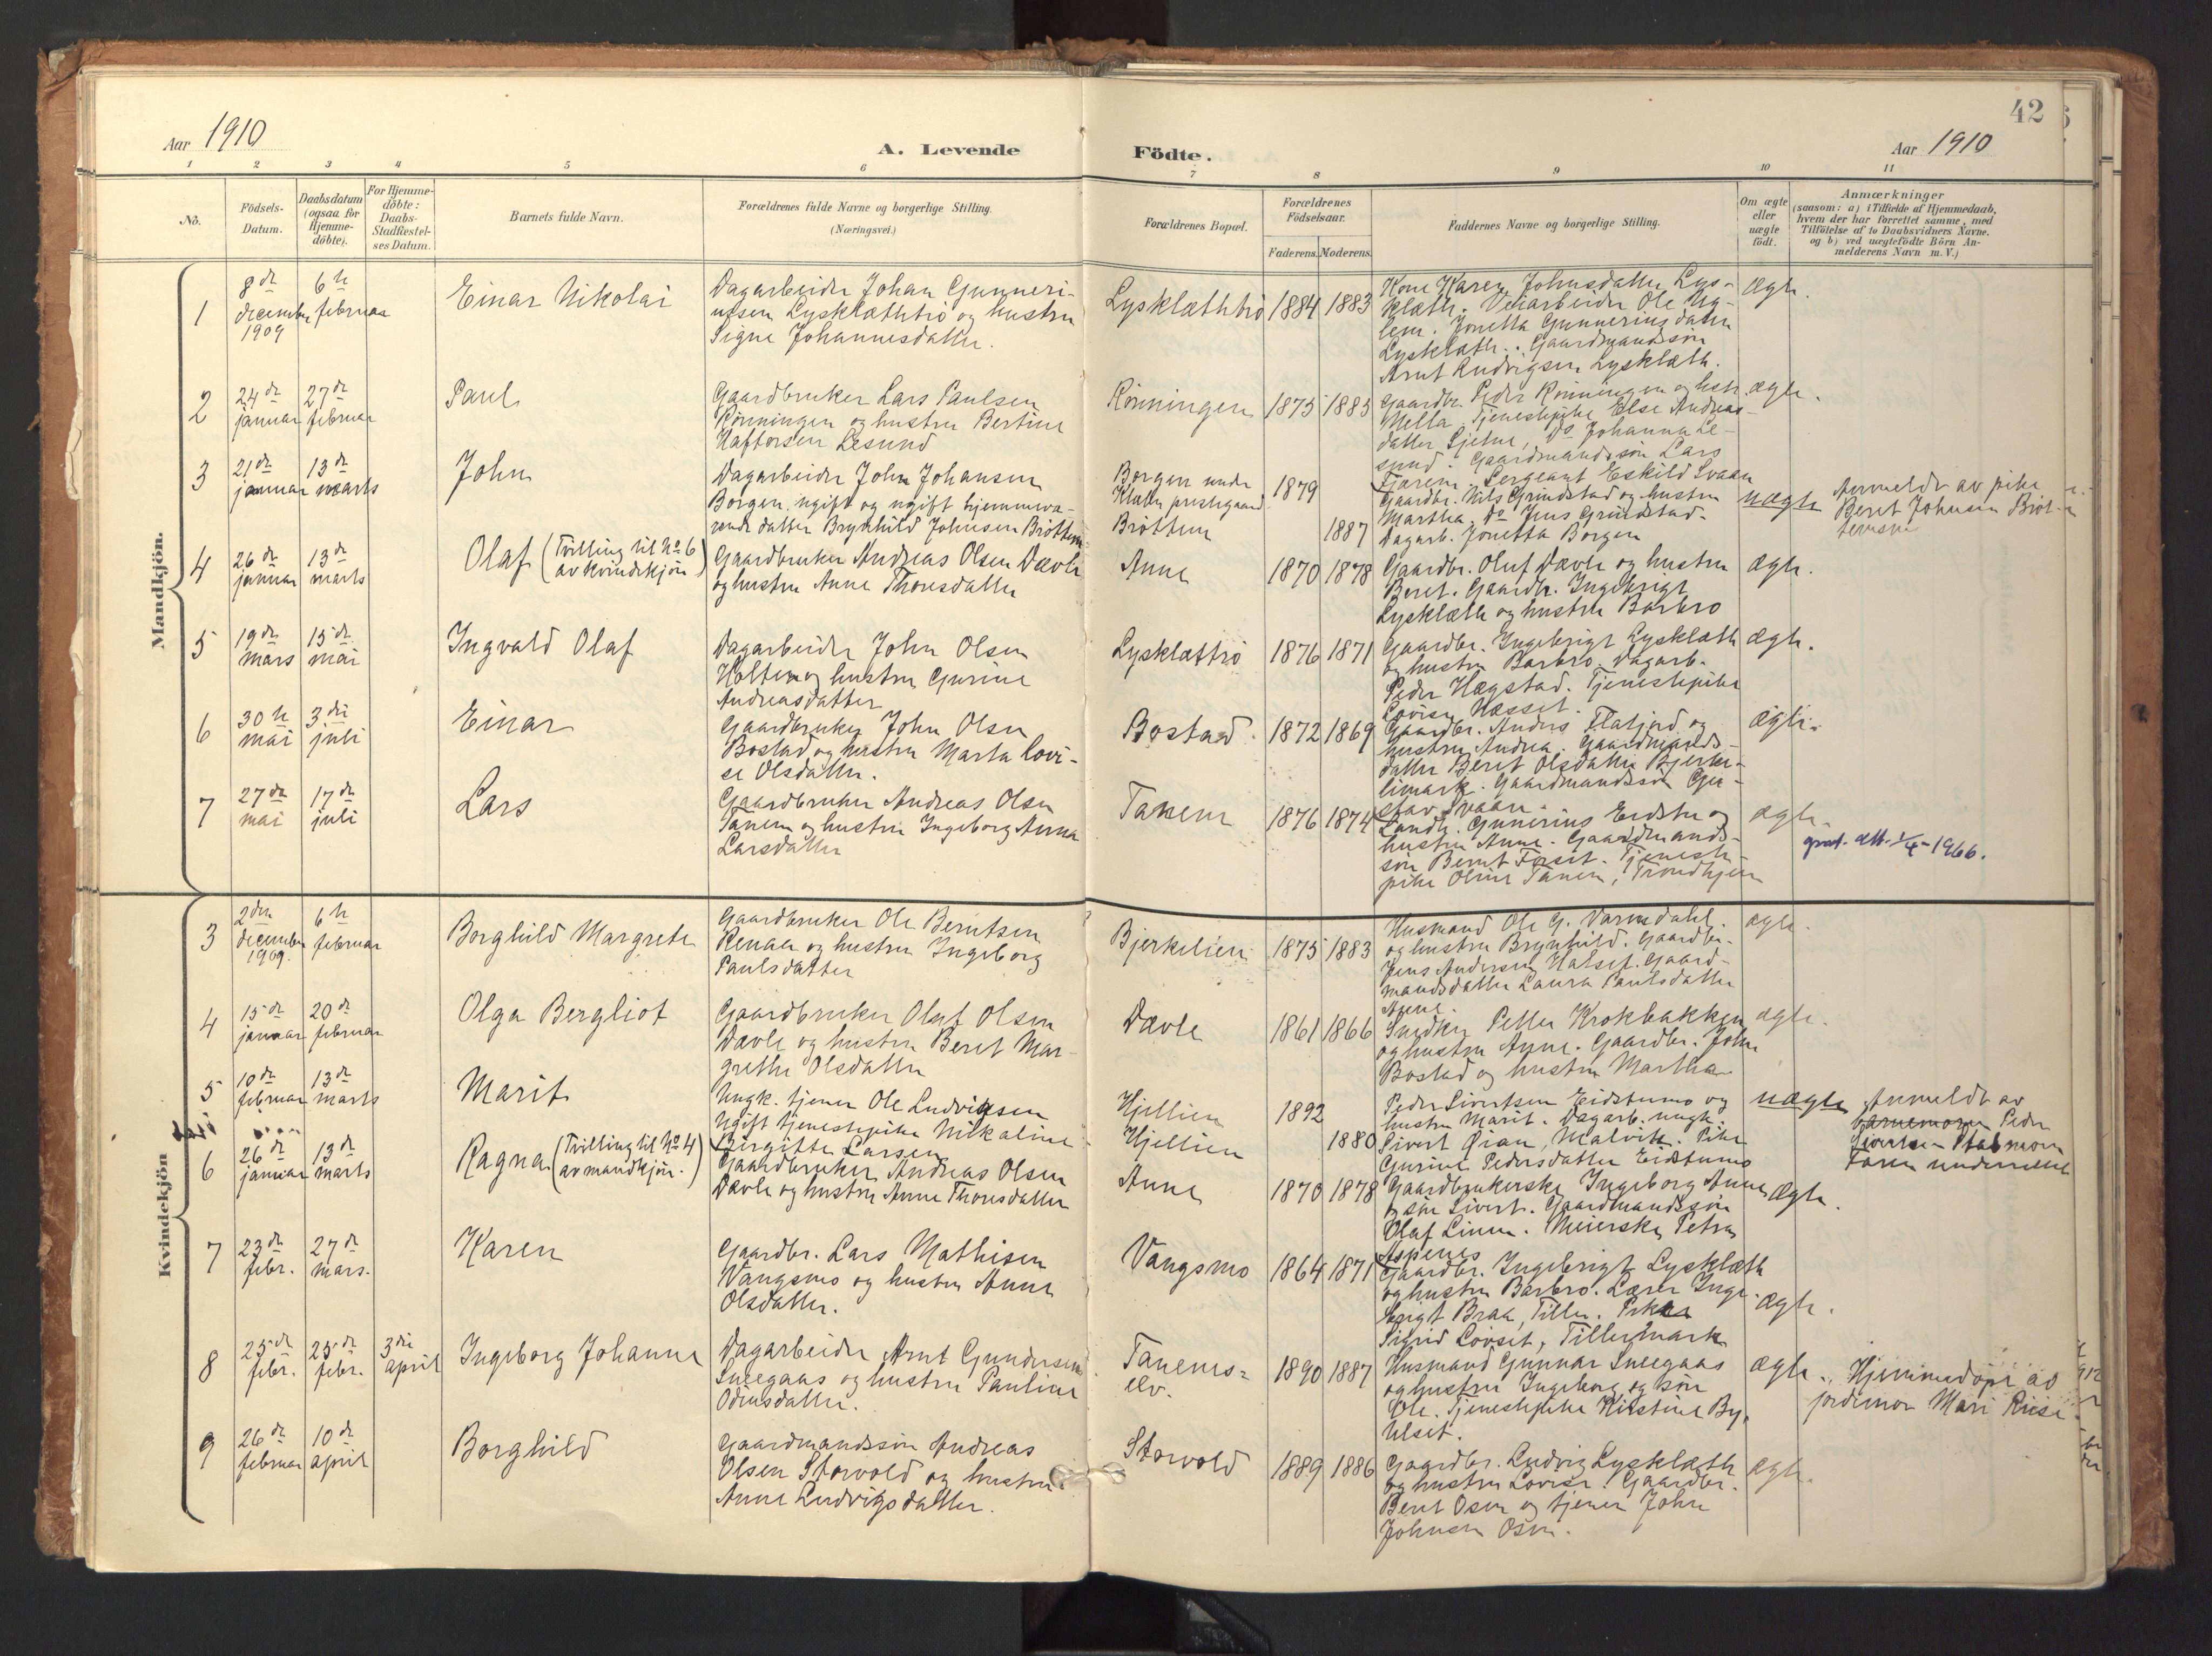 42
Aar 1910
A. Levende
Födte.
Aar 1910
1 2 3 4 5 6 7 8 9 10 11
No.
Födsels-
Datum.
Daabsdatum
(ogsaa for
Hjemme-
döbte).
For Hjemme-
döbte:
Daabs-
Stadfæstel-
ses Datum.
Barnets fulde Navn.
Forældrenes fulde Navne og borgerlige Stilling.
(Næringsvei.)
Forældrenes Bopæl.
Forældrenes
Födselsaar.
Faderens. Moderens.
Faddernes Navne og borgerlige Stilling.
Om ægte
eller
uægte
födt.
Anmærkninger
(saasom: a) i Tilfælde af Hjemmedaab,
hvem der har forrettet samme, med
Tilföielse af to Daabsvidners Navne.
og b) ved uægtefödte Börn An-
melderens Navn m. V.)
Mandkjön.
1
8de
december
1909
6te
februar
Einar Nikolai
Dagarbeider Johan Gunneri-
ussen Lysklætttrö og hustru
Signe Johannesdatter.
Lysklæthtrö
1884 1883
Kone Karen Johnsdatter Lys-
klæth. Veiarbeider Ole Ug-
lem. Jonetta Gunneriusdatter
Lysklæth. Gaardmandssön
Arnt Ludvigsen Lysklæth.
ægte.
2
24de
januar
27de
februar
Paul
Gaardbruker Lars Paulsen
Rönningen og hustru Bertine
Haftorsen Lesund
Rönningen
1875 1885
Gaardbr. Peder Rönningen og hstr.
Mella. Tjenestepike Else Andreas-
datter Sjetne, Do Johanna Le-
sund. Gaardmandssön Lars
Tjærem. Sergeant Eskild Svaan
ægte.
3
21de
januar
13de
marts
John
Dagarbeider John Johansen
Borgen ugift og ugift hjemmevæ-
rende datter Brynhild Johnsen Bröttem
Borgen under
Klæbu prestegaard
Bröttem
1879
1887
Gaardbr. Nils Grindstad og hustru
Martha. Do Jens Grindstad.
Dagarb. Jonetta Borgen
uægte
Anmeldt av pike
Beret Johnsen Bröt-
4
26de
januar
13de
marts
Olaf (Tvilling til No 6
av kvindekjön)
Gaardbruker Andreas Olsen Dævle
og hustru Anne Thoresdatter
Anne
1870 1878
Gaardbr. Oluf Dævle og hustru
Beret. Gaardb. Ingebrigt
Lysklæth og hustru Barbro
ægte.
5
19de
mars
15de
mai
Ingvald Olaf
Dagarbeider John Olsen
Holten og hustru Gurine
Andreasdatter
Lysklættrö
1876 1871
Gaardbr. Ingebrigt Lysklæth
og hustru Barbro. Dagarb.
Peder Hægstad. Tjenestepike
Lovise Næsset.
ægte.
6
30te
mai
3die
juli
Einar
Gaardbruker John Olsen
Bostad og hustru Marta Lovi-
se Olsdatter.
Bostad
1872 1869
Gaardbr. Anders Flatjord og
hustru Andrea. Gaardmands-
datter Beret Olsdatter Bjerke-
limark. Gaardmandssön Gu-
stav Svaan.
ægte.
7
27de
mai
17de
juli
Lars
Gaardbruker Andreas Olsen
Tanem og hustru Ingeborg Anna
Larsdatter
Tanem
1876 1874
Landh. Gunnerius Eidstu og
hustru Anne. Gaardmands-
sön Bernt Forset. Tjeneste-
pike Oline Tanem, Trondhjem
ægte.
grat. att. 1/4-1966.
Kvindekjön
3
2den
december
1909.
6te
februar
Borghild Margrete
Gaardbruker Ole Berntsen
Renaa og hustru Ingeborg
Paulsdatter
Bjerkelien
1875 1883
Husmand Ole G. Varmdahl.
og hustru Brynhild. Gaardbr.
Jens Andersen Halset. Gaard-
mandsdatter Laura Paulsdatter
ægte.
4
15de
januar
20de
februar
Olga Bergliot
Gaardbruker Oluf Olsen
Dævle og hustru Beret Mar-
grethe Olsdatter
Dævle
1861 1866
Snedker Petter Krokbakken
og hustru Anne. Gaardbr. John
Bostad og hustru Martha
ægte.
5
10de
februar
13de
marts
Marit
Ungk. tjener Ole Ludvigsen
Ugift tjenestepike Nikoline
Birgitte Larsen
Hjellien
Hjellien
1892
1880
Peder Sivertsen Eidstumo og
hustru Marit. Dagarb. ungk.
Sivert Øian, Malvik. Pike
Gurine Pedersdatter Eidstumo
uægte
Anmeldt av
barnemoren Peder
6
26de
januar
13de
marts
Ragna (Tvilling til No 4
av mandkjön.)
Gaardbruker Andreas Olsen
Dævle og hustru Anne Thoresdatter
Anne
1870 1878
Gaardbrukerske Ingeborg Anne
og sön Sivert. Gaardmandssön
Olaf Linem. Meierske Petra
Aspenes
ægte.
7
23de
febr.
27de
mars.
Karen
Gaardbr. Lars Mathisen
Vangsmo og hustru Anne
Olsdatter.
Vangsmo
1864 1871
Gaardbr. Ingebrigt Lysklæth
og hustru Barbro. Lærer Inge-
brigt Braa, Tiller. Pike
Sigrid Lövset, Tillermark
ægte.
8
25de
febr.
25de
febr.
3die
april
Ingeborg Johanne
Dagarbeider Arnt Gundersen
Sneegaas og hustru Pauline
Odinsdatter.
Tanems-
elv.
1890 1887
Husmand Gunnar Sneegaas
og hustru Ingeborg og sön
Ole. Tjenestepike Kirstine By,
Ulset.
ægte.
Hjemmedöpt av
jordmor Mari Riise
9
26de
februar
10de
april
Borghild
Gaardmandssön Andreas
Olsen Storvold og hustru
Anne Ludvigsdatter.
Storvold
1889 1886
Gaardbr. Ludvig Lysklæth
og hustru Lovise. Gaardbr.
Beret Osen og tjener John
Johnsen Osen.
ægte.